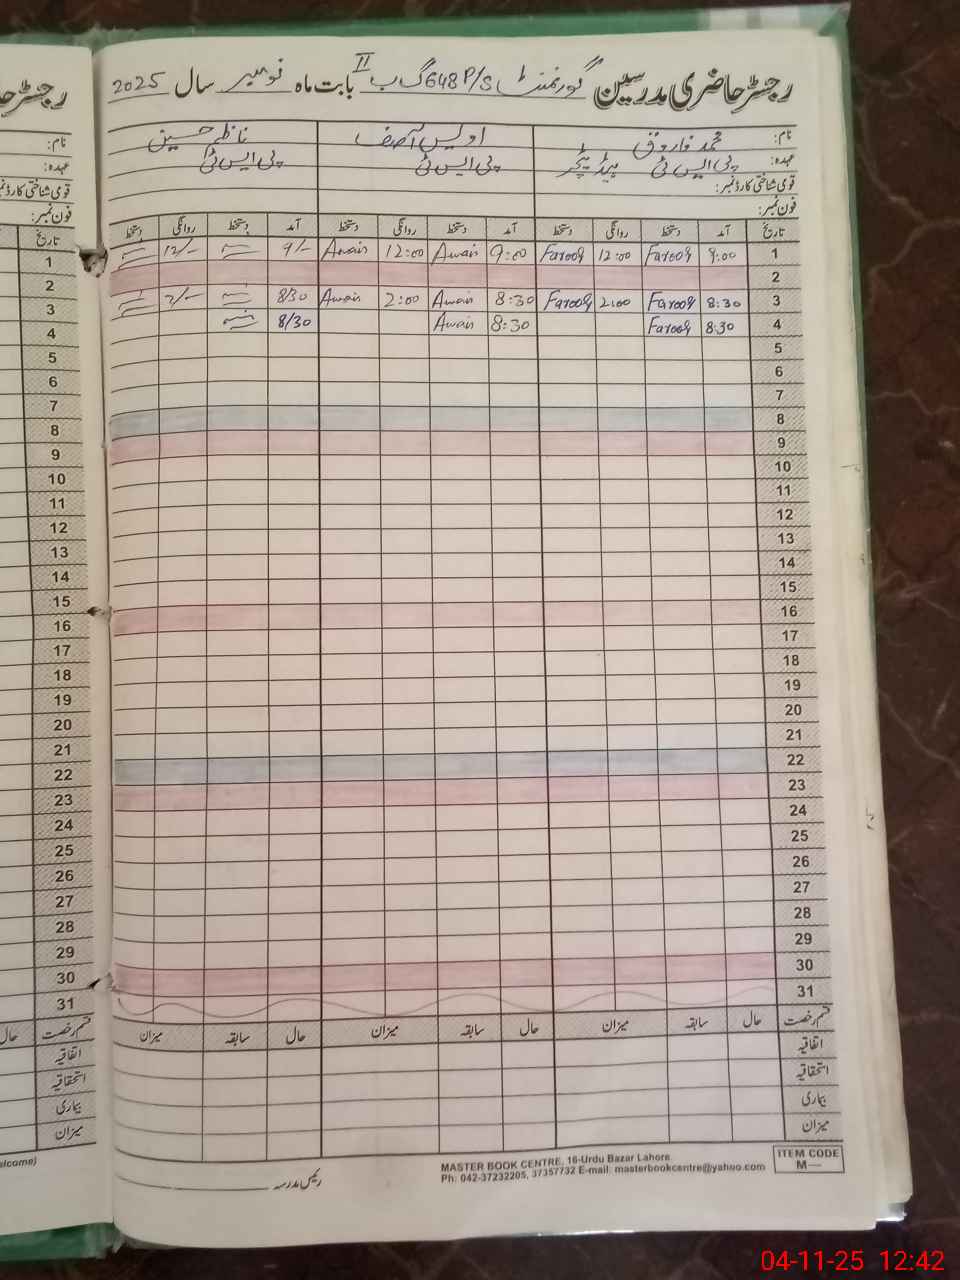 رجسٹر حاضری مدرسین گورنمنٹ P/S 648 گ ب II بابت ماہ نومبر سال 2025
نام: محمد فاروق اویس آصف ناظم حسین
عہدہ: پی ایس ٹی ہیڈ ٹیچر پی ایس ٹی پی ایس ٹی
قومی شناختی کارڈ نمبر:
فون نمبر:
تاریخ آمد دستخط روانگی دستخط آمد دستخط روانگی دستخط آمد دستخط روانگی دستخط
1 9:00 Farooq 12:00 Farooq 9:00 Awais 12:00 Awais 9/- 12/-
2
3 8:30 Farooq 2:00 Farooq 8:30 Awais 2:00 Awais 8/30 2/-
4 8:30 Farooq 8:30 Awais 8/30
5
6
7
8
9
10
11
12
13
14
15
16
17
18
19
20
21
22
23
24
25
26
27
28
29
30
31
قسم رخصت حال سابقہ میزان حال سابقہ میزان حال سابقہ میزان
اتفاقیہ
استحقاقیہ
بیماری
میزان
رئیس مدرسہ
MASTER BOOK CENTRE, 16-Urdu Bazar Lahore
Ph: 042-37232205, 37357732 E-mail: masterbookcentre@yahoo.com
ITEM CODE
M—
رجسٹر حا
نام:
عہدہ:
قومی شناختی کارڈ نمبر
فون نمبر:
تاریخ
1
2
3
4
5
6
7
8
9
10
11
12
13
14
15
16
17
18
19
20
21
22
23
24
25
26
27
28
29
30
31
قسم رخصت حال
اتفاقیہ
استحقاقیہ
بیماری
میزان
elcome)
04-11-25 12:42